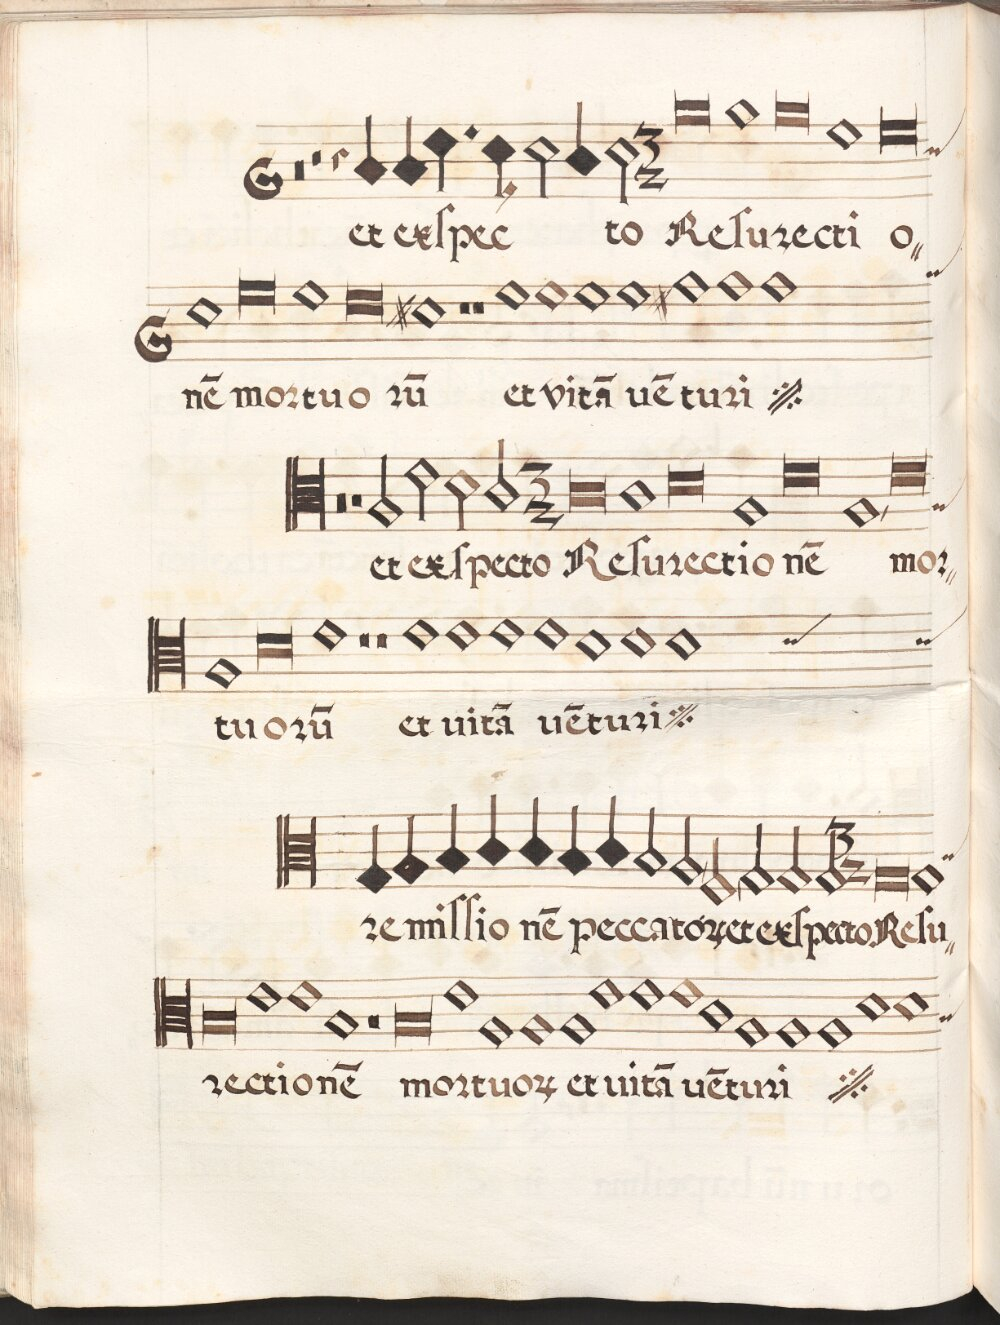 et exspec to Resurecti o
nē mortuo rū et vitā uē turi
et exspecto Resurectio nē mor
tu orū et uitā uēturi
remissio nē peccatoꝝ et exspecto Resu
rectionē mortuoꝝ et uitā uēturi